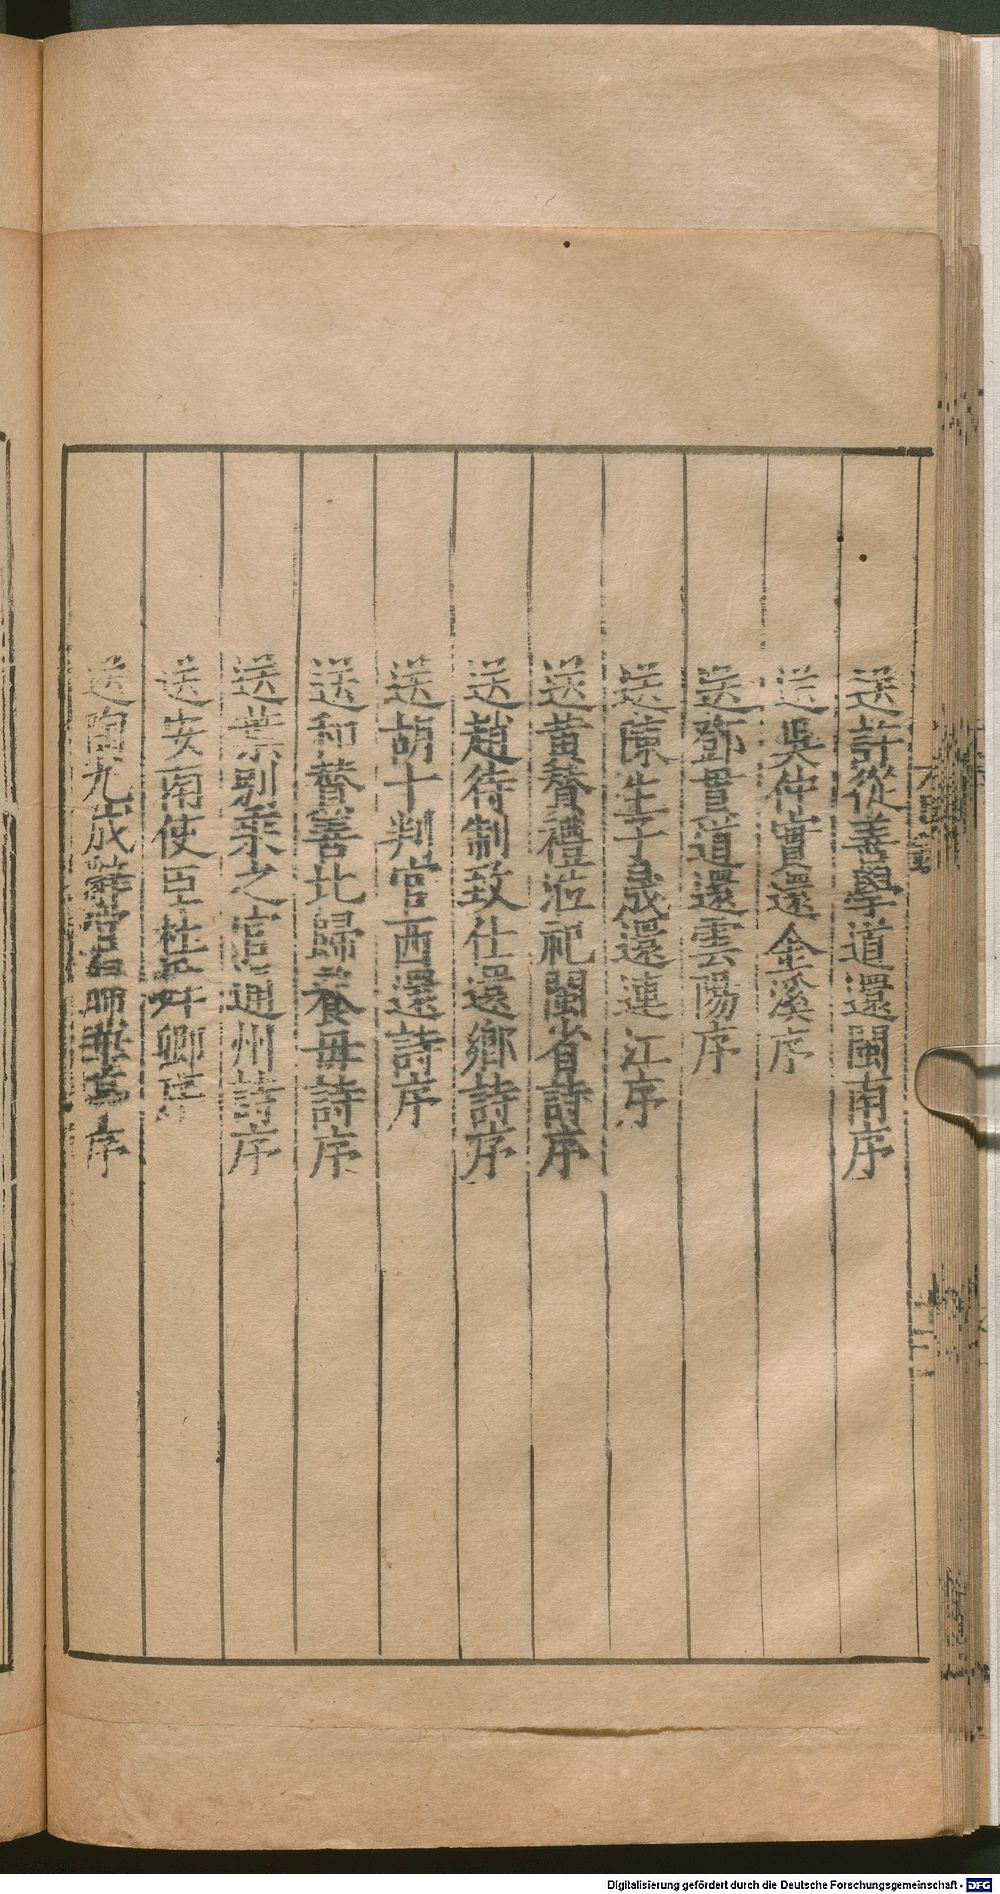 送許從善學道還閩南序
送吳仲實還金溪序
送鄧貫道還雲陽序
送陳生子晟還連江序
送黃贊禮涖祀閩省詩序
送趙待制致仕還鄉詩序
送胡十判官西還詩序
送和贊善北歸養母詩序
送葉別乘之官通州詩序
送安南使臣杜舜卿序
送陶九成辭官歸華亭序
Digitalisierung gefördert durch die Deutsche Forschungsgemeinschaft - DFG